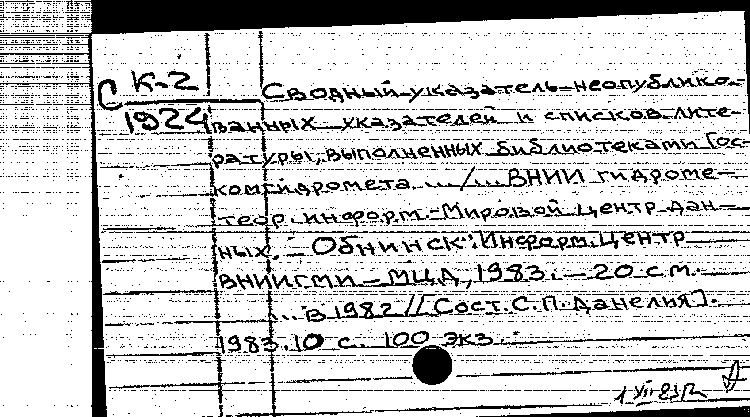 С К-2
1924
Сводный указатель неопублико-
ванных указателей и списков лите-
ратуры, выполненных библиотеками Гос-
комгидромета ... / ... ВНИИ гидроме-
теор. информ. - Мировой центр дан-
ных. - Обнинск: Информ. центр
ВНИИГМИ - МЦД, 1983. - 20 см.
... в 1982 // [Сост. С.П. Данелия].
1983. 10 с. 100 экз.
1 XII 83